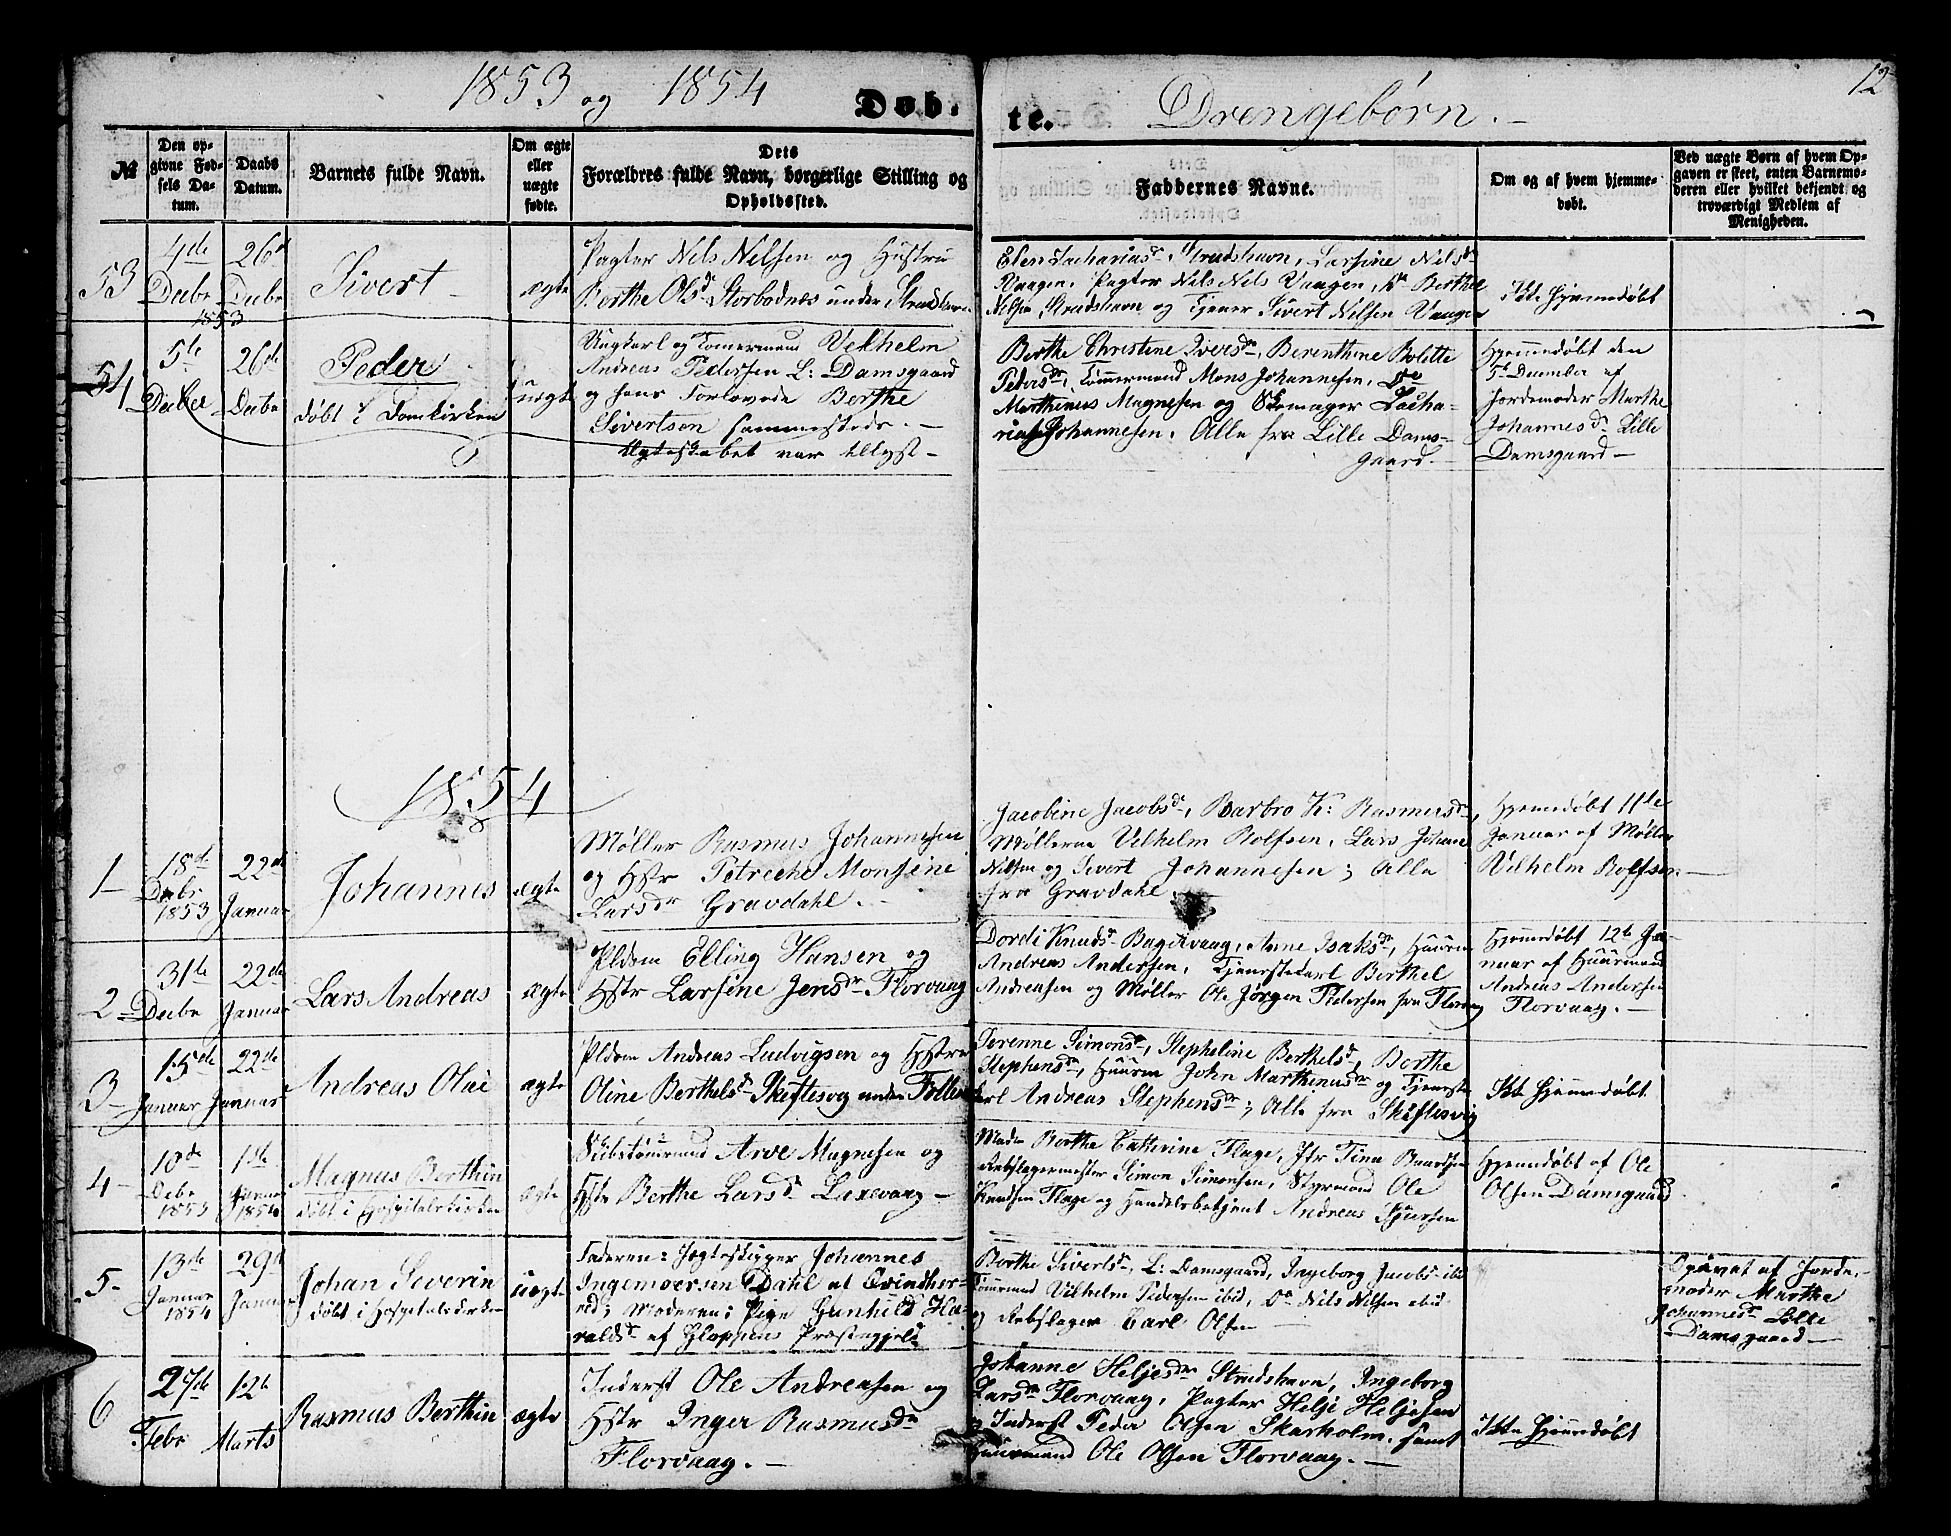 1853 og 1854 Døb- te. Drengebørn. - 12
№
Den op-
givne Fød-
sels Da-
tum.
Daabs
Datum.
Barnets fulde Navn.
Om ægte
eller
uægte
fødte.
Dets
Forældres fulde Navn, borgerlige Stilling og
Opholdssted.
Faddernes Navne.
Om og af hvem hjemme-
døbt.
Ved uægte Børn af hvem Op-
gaven er skeet, enten Barnemo-
deren eller hvilket bekjendt og
troværdigt Medlem af
Menigheden.
53
4de
Decbr
1853
26d
Decbr
Sivert
ægte
Pagter Nels Nelsen og Hustru
Berthe Olsd Storbodnes under Strudshavn
Elen Zachariasd. Strudshavn, Larsine Nilsd
Vaagen. Pagter Nils Nils Vaagen, Berthel
Nilsen Strudshavn og Tjener Sivert Nilsen Vaagen
Ikke Hjemmedøbt
54
5te
Decber
26de
Decbr
Peder
døbt i Domkirken
uægte
Ungkarl og Tømermand Velhelm
Andreas Pedersen L: Damsgaard
og hans Forlovede Berthe
Sivertsen sammesteds. -
Ægteskabet var tillyst -
Berthe Christine Iversdr, Berenthine Bolette
Pedersdr, Tømmermand Mons Johannesen, Do
Marthinus Magnesen og Skomager Zacha-
rias Johannesen. Alle fra Lille Dams-
gaard.
Hjemmedøbt den
5te December af
Jordemoder Marthe
Johannesd. Lille
Damsgaard -
1854
1
18de
Decbr
1853
22de
Januar
Johannes
ægte
Møller Rasmus Johannesen
og Hstr Petreche Monsine
Larsdr Gravdahl. -
Jacobine Jacobsd, Barbro K: Rasmusd,
Møllerne Vilhelm Rolfsen, Lars Johan
Nilsen og Sivert Johannesen; Alle
fra Gravdahl
Hjemmedøbt 11te
Januar af Møller
Vilhelm Rolfsen
2
31te
Decbr
22de
Januar
Lars Andreas
ægte
Pldsm Elling Hansen og
Hstr Larsine Jensdr Florvaag
Dordi Knudsd Bagervaag, Anne Isaksdr, Huurm
Andreas Andersen, Tjenestekarl Berthel
Andreasen og Møller Ole Jørgen Pedersen fra Florvaag
Hjemmedøbt 12te Ja-
nuar af Huurmand
Andreas Andersen
Florvaag. -
3
15de
Januar
22de
Januar
Andreas Olai
ægte
Pldsm Andreas Ludvigsen og Hstr
Oline Berthelsd Skiftesvig under
Serenne Simonsd, Stepheline Berthelsd, Berthe
Stephensdr, Huurm John Marthinusdr og Tjeneste
karl Andreas Stephensdr; Alle fra Skiftesvig
Ikke Hjemmedøbt
4
10de
Debr
1853
1ste
Januar
1854
Magnus Berthin
døbt i Hospitalskirken
ægte
Arve Magnesen og
Hstr Berthe Larsd Laxevaag -
Madm Berthe Catherine Flage, Jfr Tina Baardsen
Rebslagermester Simon Simonsen, Styrmand Ole
Knudsen Flage og Handelsbetjent Andreas
Hjemmedøbt af Ole
Olsen Damsgaard
5
13de
Januar
1854
29d
Januar
Johan Severin
døbt i Hospitalskirken
uægte
Faderen: Jægteskipper Johannes
Ingemoersen Dahl at Qvindher-
red; Moderen: Pige Gunhild Ha-
raldsd af Gloppens Præstegjeld
Berthe Sivertsd, L: Damsgaard, Ingeborg Jacobsd ibid
Tømrmand Vilhelm Pedersen ibid, Do Nils Nilsen ibid
og Rebslager Carl Olsen
Opgivet af Jorde-
moder Marthe
Johannesd Lille
Damsgaard -
6
27de
Febr
12te
Marts
Rasmus Berthin
ægte
Inderst Ole Andreasen og
Hstr Inger Rasmusdr
Florvaag. -
Johanne Heljesdr Strudshavn, Ingeborg
Larsdr Florvaag, Pagter Helje Heljesen
og Inderst Peder Olsen Skarholm, samt
Huurmand Ole Olsen Florvaag. -
Ikke Hjemmedøbt